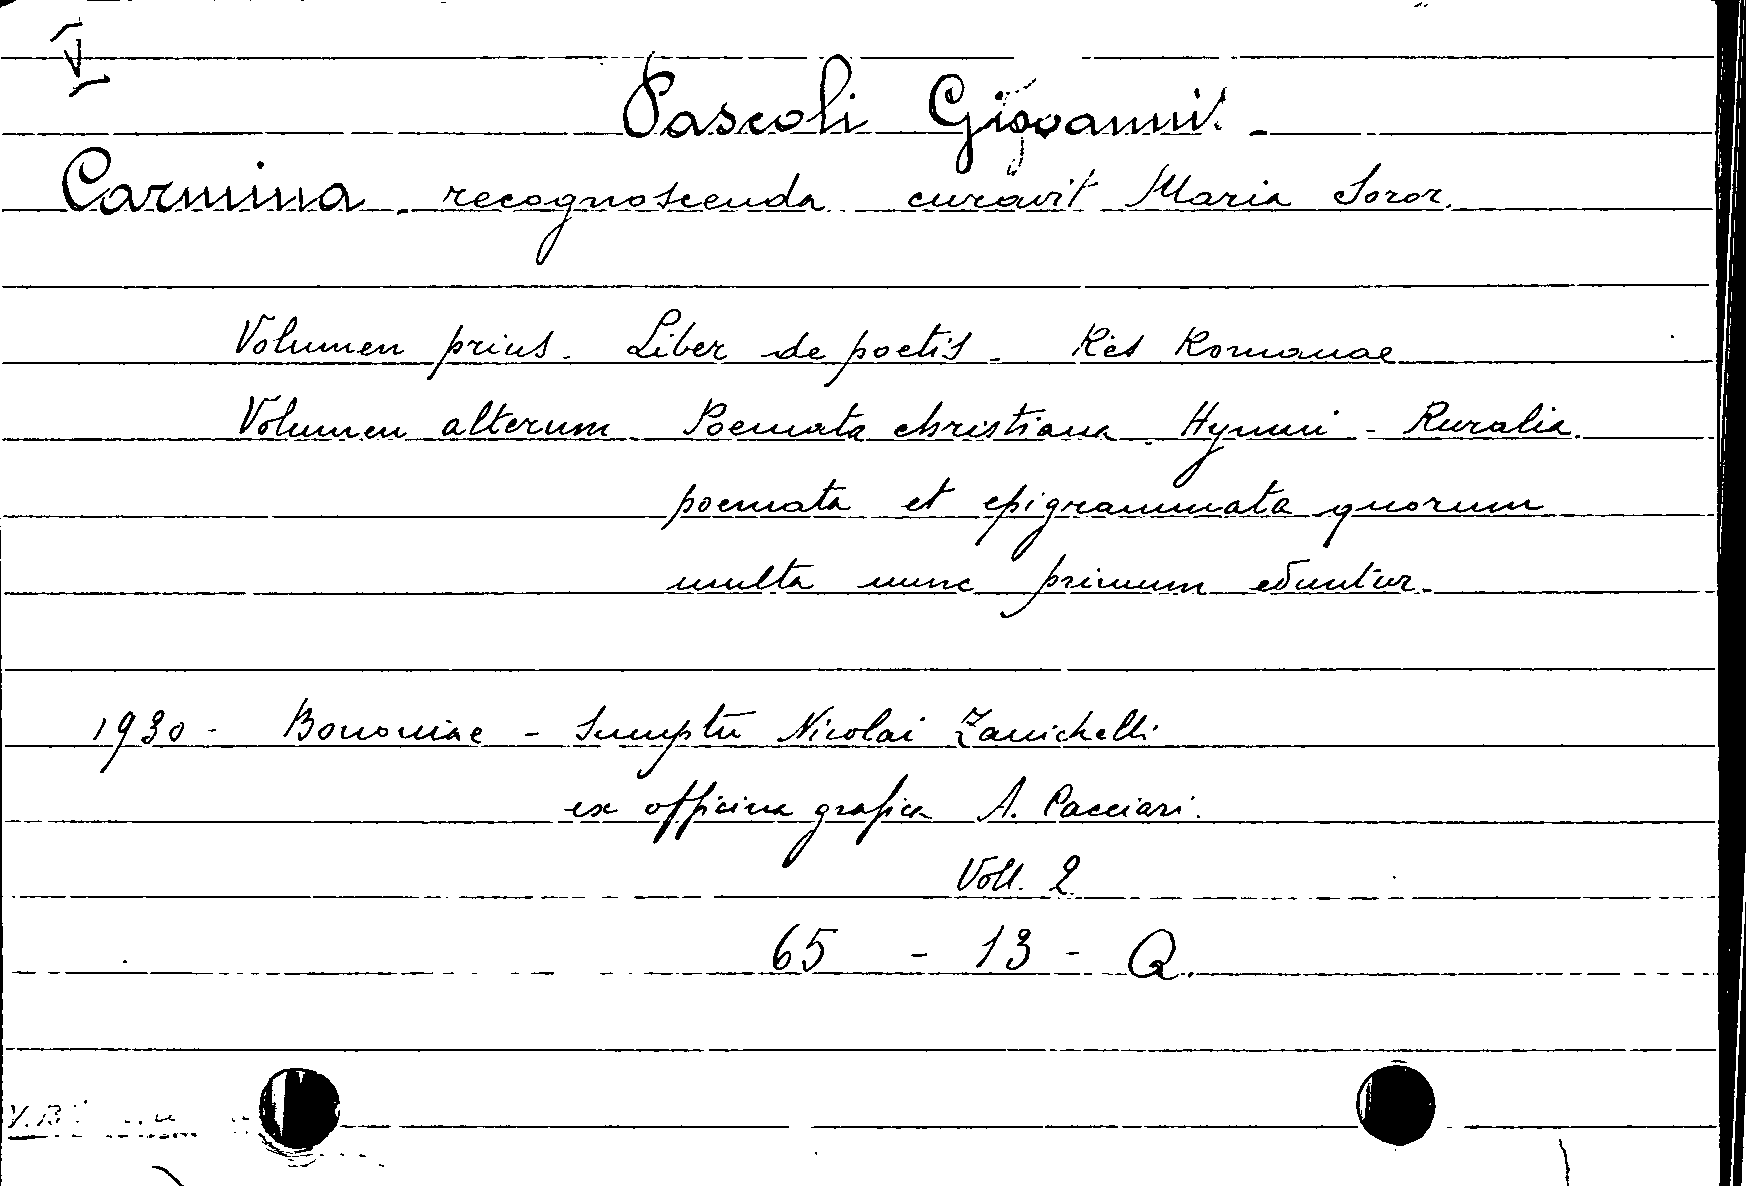 V
Pascoli Giovanni. -
Carmina. recognoscenda curavit Maria Soror.
Volumen prius. Liber de poetis - Res Romanae
Volumen alterum Poemata christiana. Hymni - Ruralia.
poemata et epigrammata quorum
multa nunc primum eduntur.
1930 - Bononiae - Sumptu Nicolai Zanichelli
ex officina grafica A. Cacciari.
Voll. 2
65 - 13 - Q.